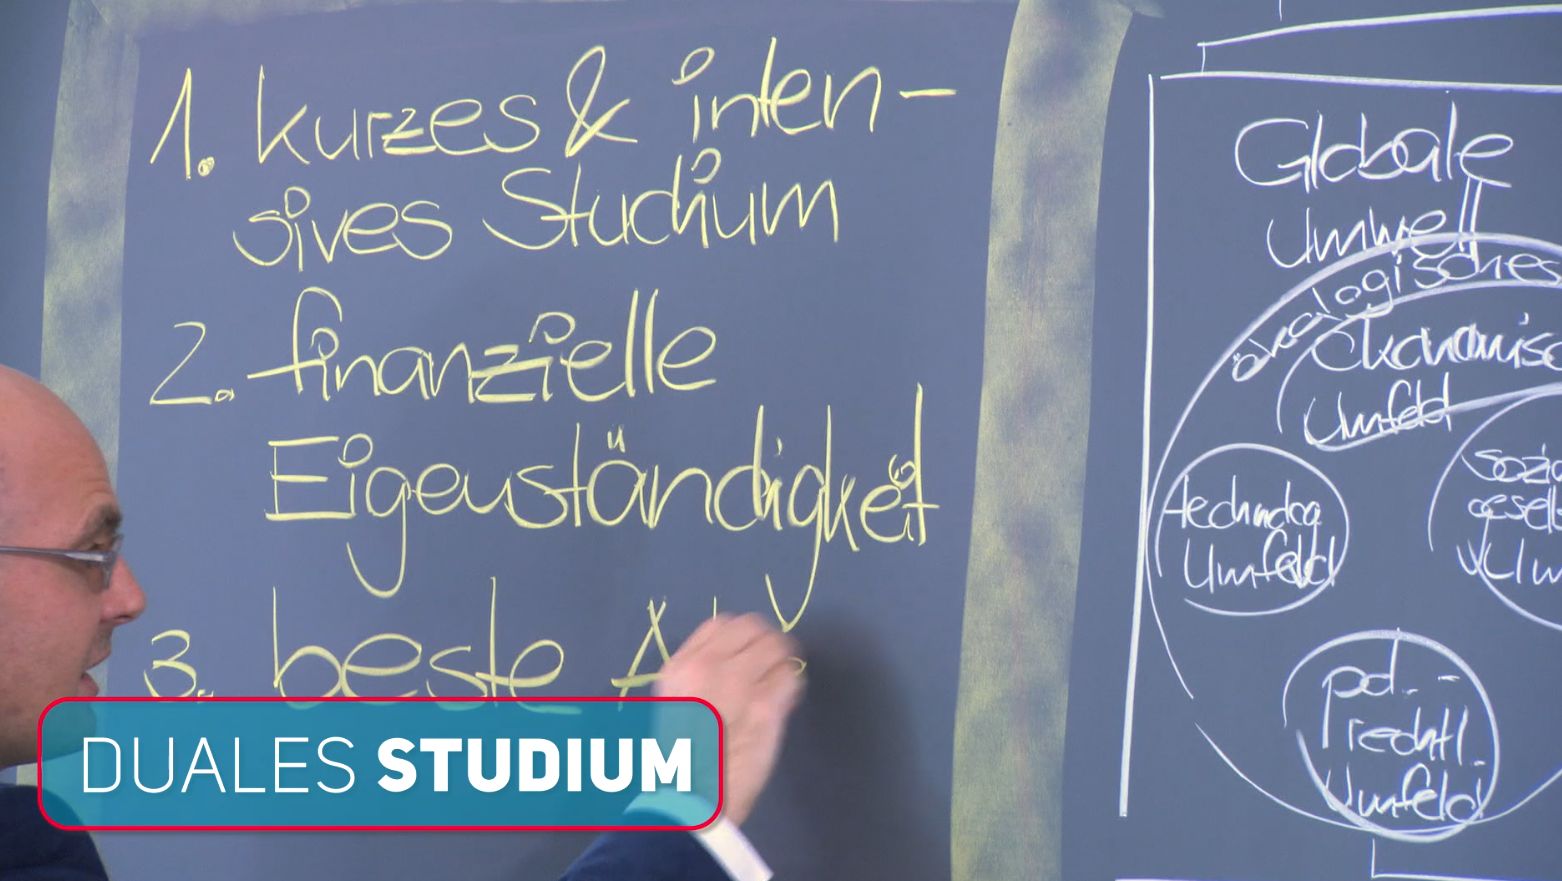 1. kurzes & inten-
sives Studium
2. finanzielle
Eigenständigkeit
3. beste
DUALES STUDIUM
Globale
Umwelt
ökologisches
Umfeld
technolog
Umfeld
pol.-
rechtl.
Umfeld